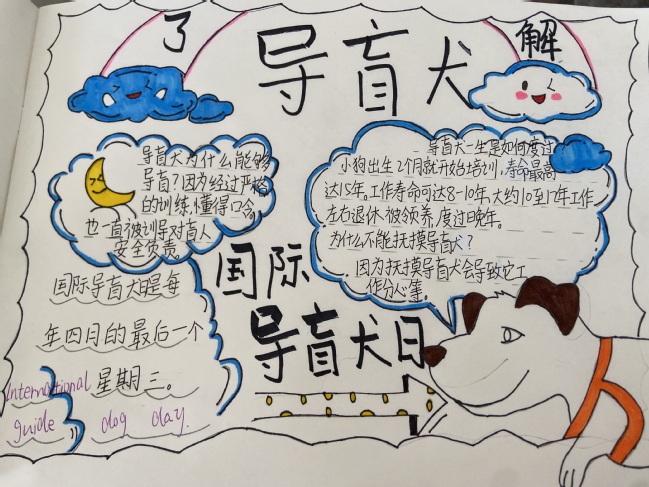 了 导盲犬 解
导盲犬为什么能够
导盲?因为经过严格
的训练,懂得口令,
也一直被训导对盲人
安全负责。
导盲犬一生是如何度过
小狗出生2个月就开始培训,寿命最高
达15年。工作寿命可达8-10年,大约10至12年工作
左右退休,被领养,度过晚年。
为什么不能抚摸导盲犬?
因为抚摸导盲犬会导致它工
作分心等。
国际
导盲犬日
国际导盲犬日是每
年四月的最后一个
星期三。
International
guide dog day.